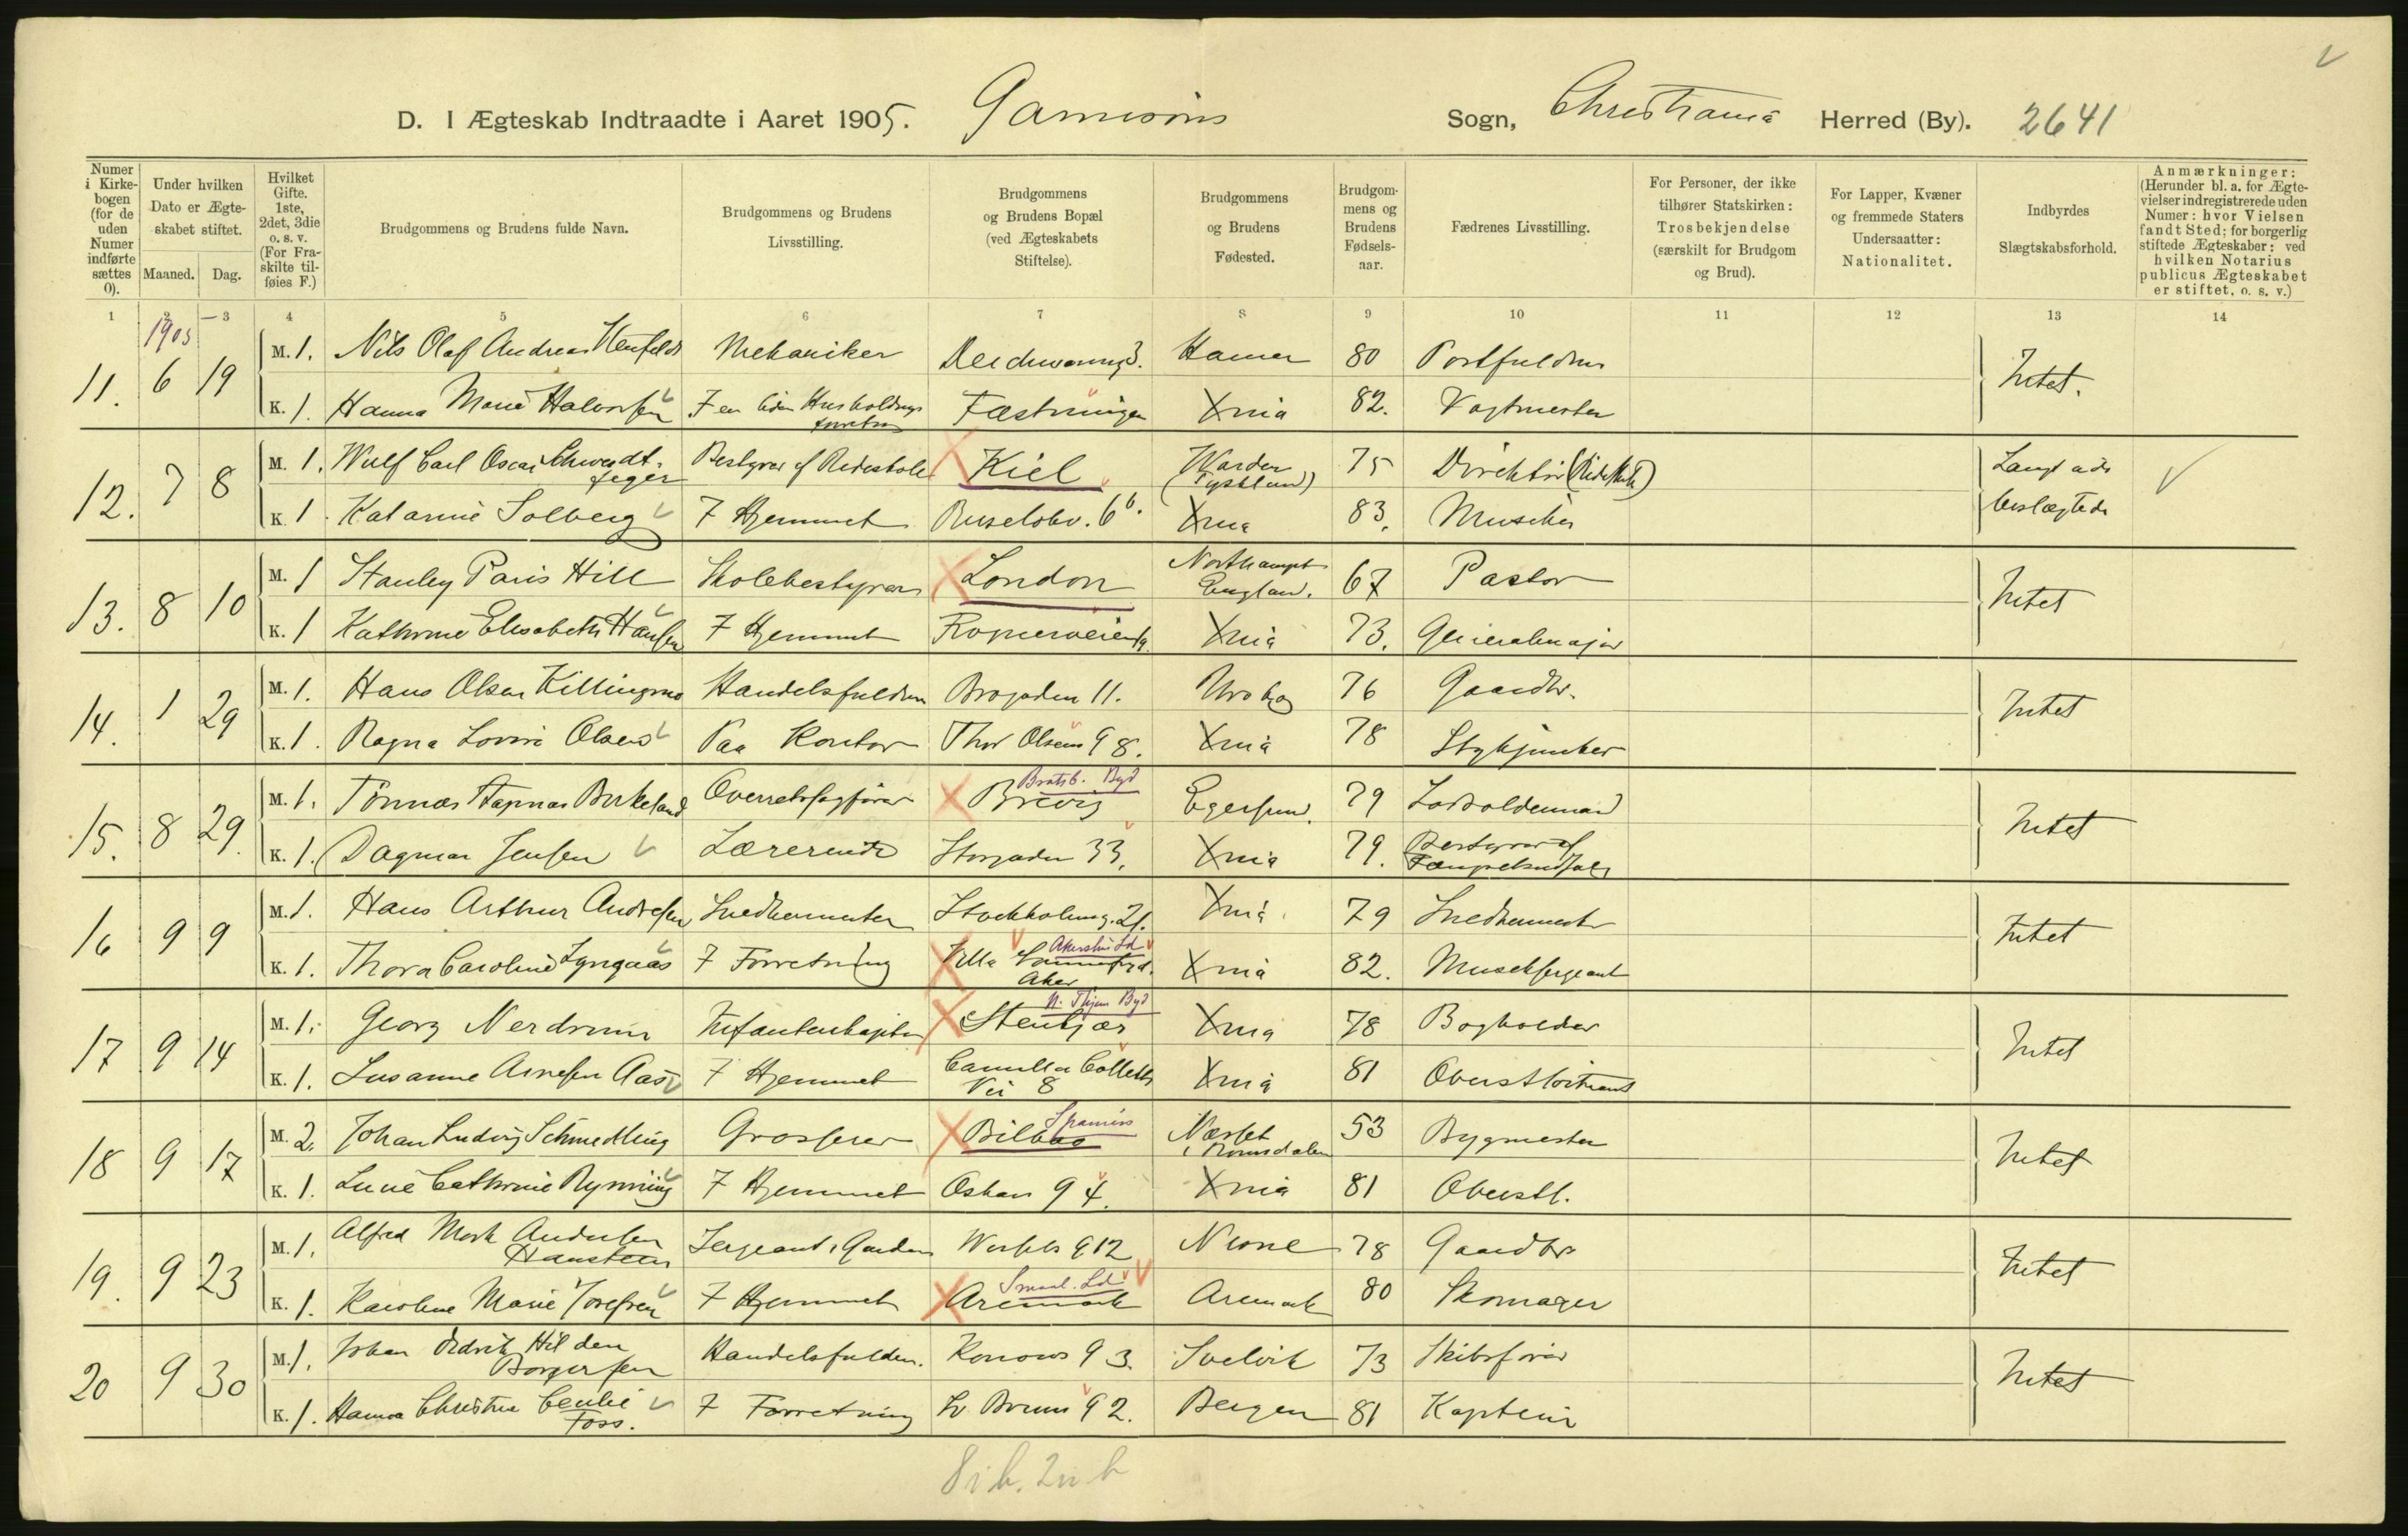 D. I Ægteskab Indtraadte i Aaret 1905. Garnisons Sogn, Christiania Herred (By). 2641
Numer i Kirkebogen (for de uden Numer indførte sættes 0).
Under hvilken Dato er Ægteskabet stiftet.
Maaned. Dag.
Hvilket Gifte. 1ste, 2det, 3die o. s. v. (For Fraskilte tilføies F.)
Brudgommens og Brudens fulde Navn.
Brudgommens og Brudens Livsstilling.
Brudgommens og Brudens Bopæl (ved Ægteskabets Stiftelse).
Brudgommens og Brudens Fødested.
Brudgommens og Brudens Fødselsaar.
Fædrenes Livsstilling.
For Personer, der ikke tilhører Statskirken: Trosbekjendelse (særskilt for Brudgom og Brud).
For Lapper, Kvæner og fremmede Staters Undersaatter: Nationalitet.
Indbyrdes Slægtskabsforhold.
Anmærkninger: (Herunder bl. a. for Ægtevielser indregistrerede uden Numer: hvor Vielsen fandt Sted; for borgerlig stiftede Ægteskaber: ved hvilken Notarius publicus Ægteskabet er stiftet, o. s. v.)
1 2 3 4 5 6 7 8 9 10 11 12 13 14
1905
11. 6 19 M. 1. Nils Olaf Andreas Mekaniker Hamar 80 Postfuldm Intet.
K. 1. Hanna Marie Halvorsen Fæstningen Xnia 82. Vagtmester
12. 7 8 M. 1. Wulf Carl Oscar Schwerdtfeger Bestyrer af Rideskole Kiel Warder (Tyskland) 75 Direktør Langt ude beslægtede
K. 1. Katarine Solberg I Hjemmet Ruseløkv. 6b. Xnia 83. Musiker
13. 8 10 M. 1 Stanley Paris Hill Skolebestyrer London Northampt England. 67 Pastor Intet
K. 1 Kathrine Elisabeth Hansen I Hjemmet Xnia 73. Generalmajor
14. 1 29 M. 1. Hans Olsen Killingmo Handelsfuldm Brogaden 11. 76 Gaardbr. Intet
K. 1. Ragna Lovise Olsen Paa Kontor Thor Olsens g 8. Xnia 78 Stykjunker
15. 8 29. M. 1. Tönnes Birkeland Overretssagfører Bratsb. Byd Brevig Egersund. 79 Lodsoldermand Intet
K. 1. Dagmar Jensen Lærerinde Storgaden 33. Xnia 79. Bestyrer af
16 9 9 M. 1. Hans Arthur Andresen Snedkermester Stockholmsg. 21. Xnia. 79 Snedkermester Intet
K. 1. Thora Caroline Lyngaas I Forretning Villa Akershus Ld Aker Xnia 82. Musiksergeant
17 9 14 M. 1. Georg Nerdrum Infanterikaptein N. Thjem Byd Stenkjær Xnia 78 Bogholder Intet
K. 1. Susanne Arnesen Aas I Hjemmet Camilla Colletts Vei 8 Xnia 81 Oberstløitnant
18 9 17 M. 2. Johan Ludvig Schmedling Grosserer Spanien Bilbao Næsset i Romsdalen 53 Bygmester Intet
K. 1. Cathrine Rynning I Hjemmet Oskars g 4. Xnia 81 Oberstl.
19. 9 23 M. 1. Alfred Mork Andersen Hansteen Sergeant i Garden Wessels g 12 78 Gaardbr Intet
K. 1. Karoline Marie Josefsen I Hjemmet Smaal. Ld Aremark Aremark 80 Skomager
20 9 30 M. 1. Johan Hilden Borgersen Handelsfuldm. Konows g 3. Svelvik 73 Skibsfører Intet
K. 1. Hanna Christine Cecilie Foss. I Forretning Bruns g 2. Bergen 81 Kaptein
8 i b. 2 u b